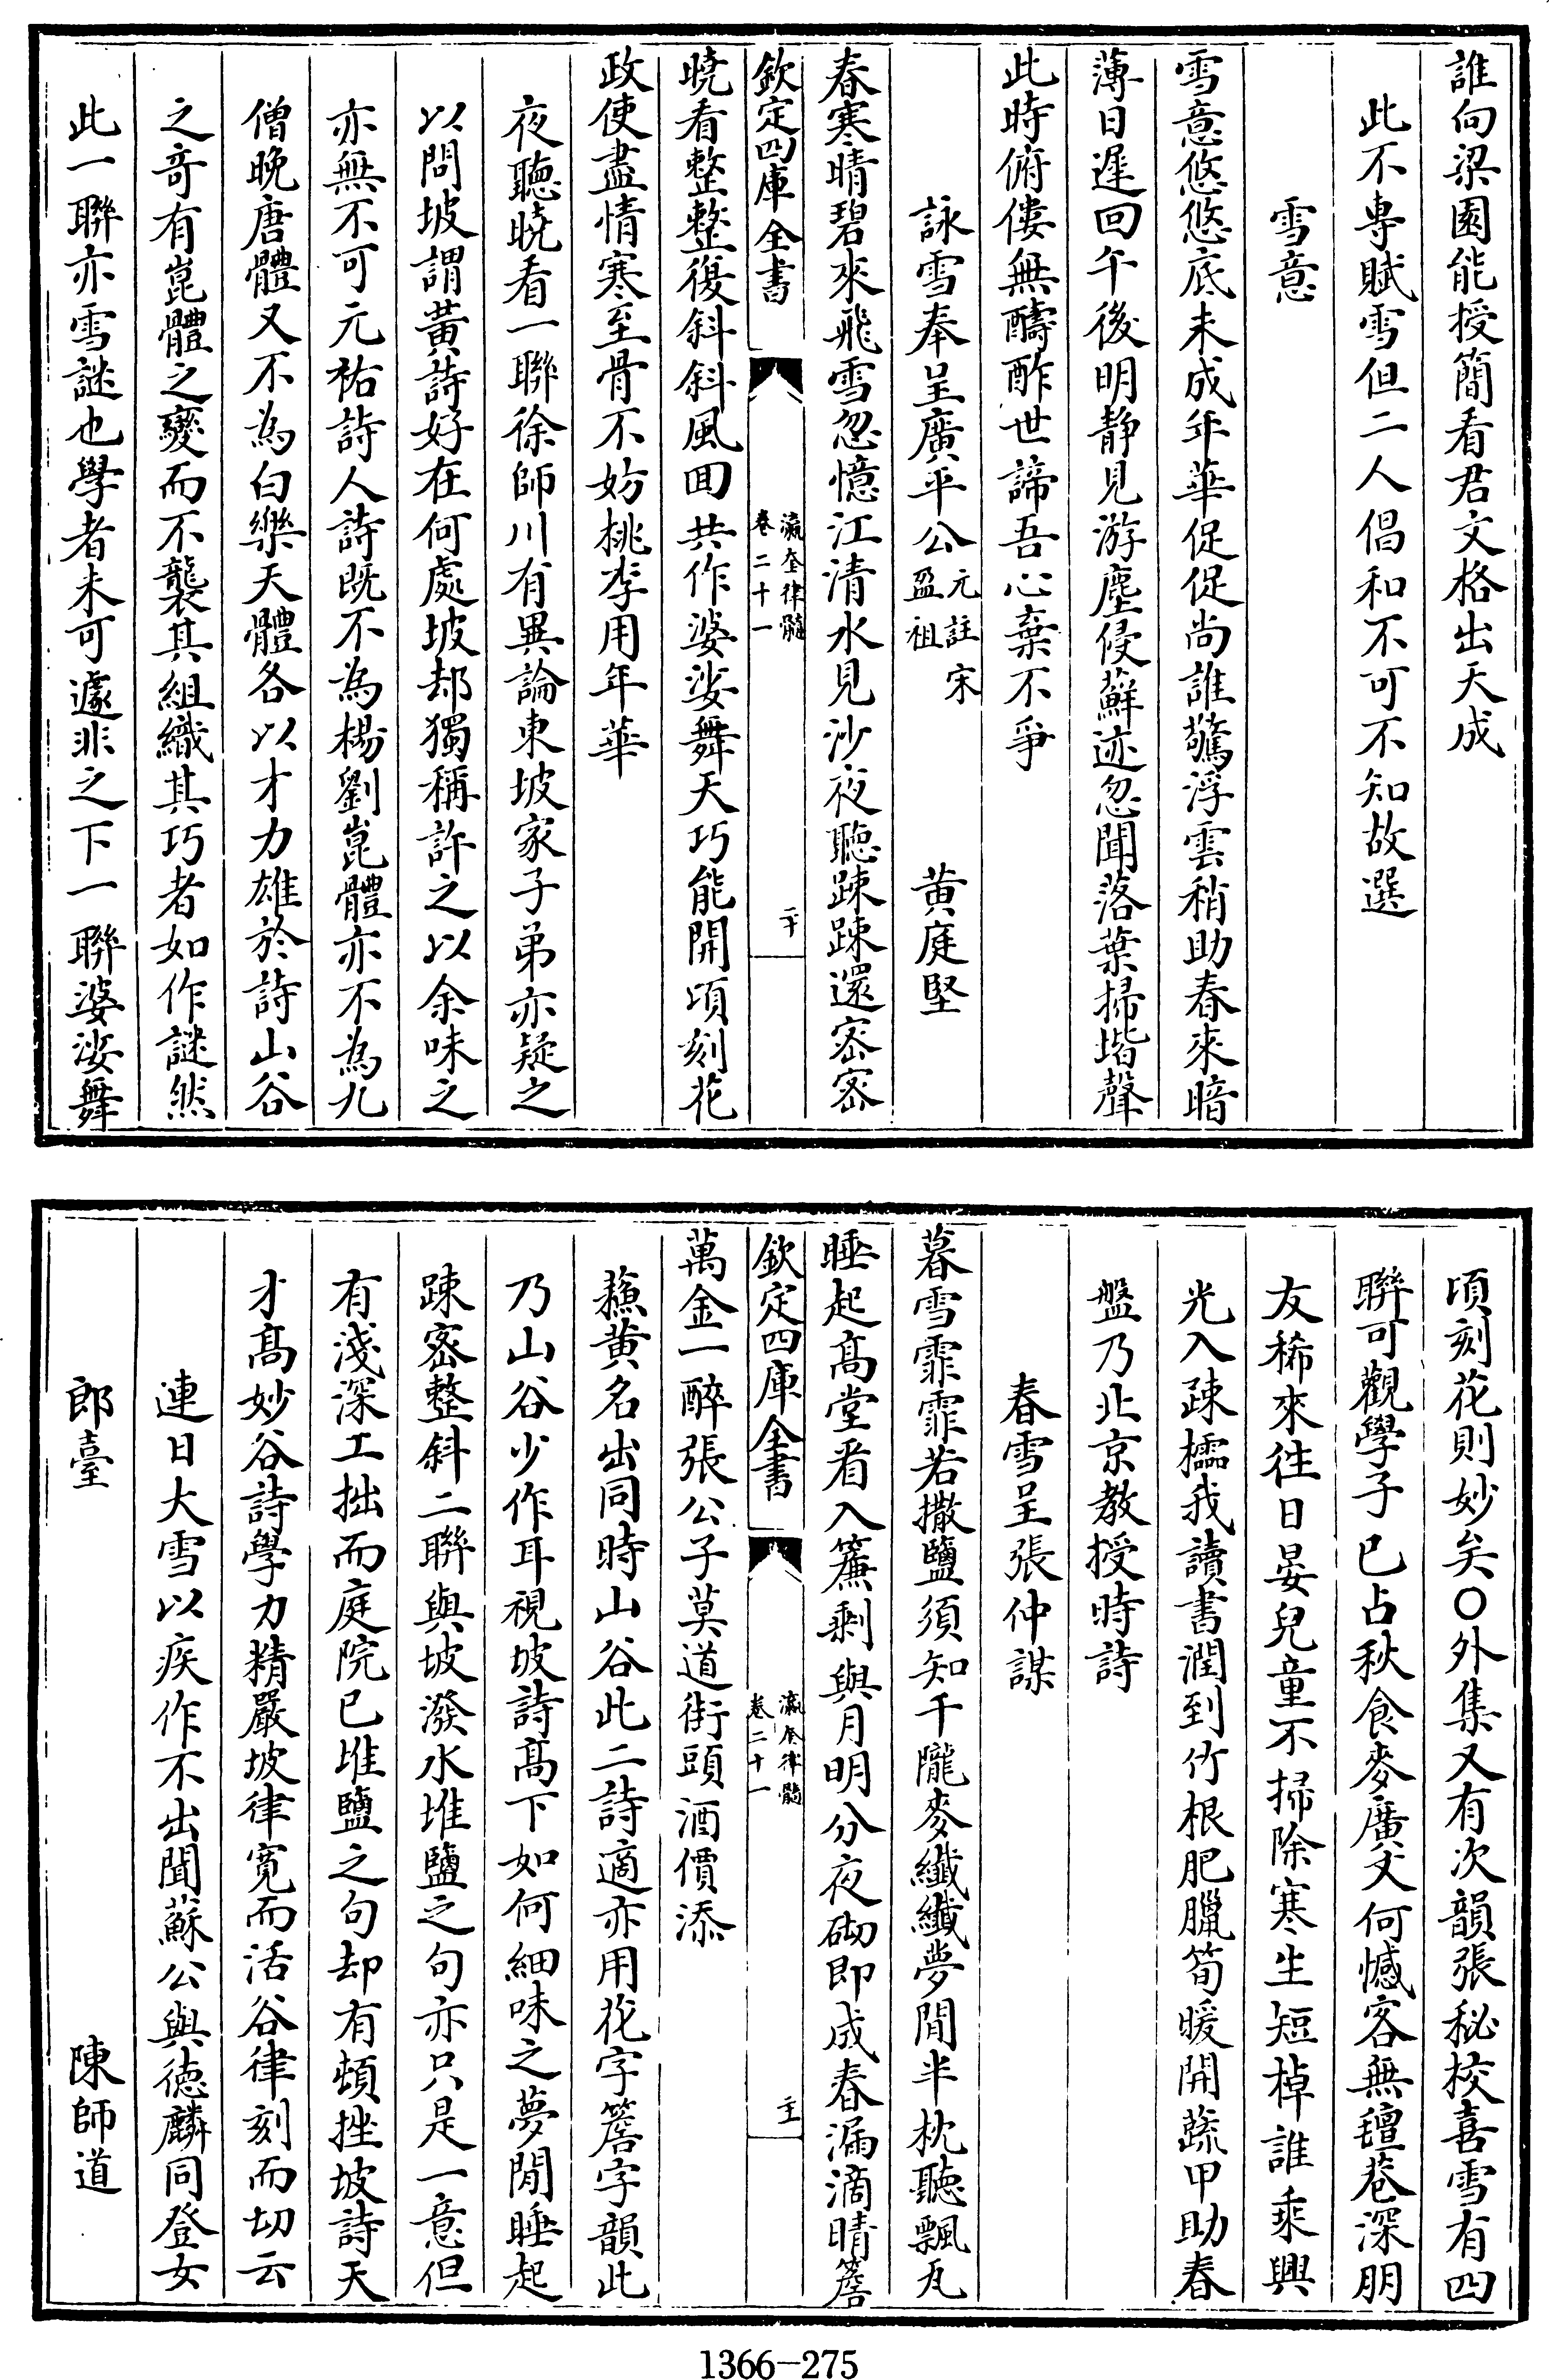 誰向梁園能授簡看君文格出天成
此不專賦雪但二人倡和不可不知故選
雪意
雪意悠悠底未成年華促促尚誰驚浮雲稍助春來暗
薄日遲回午後明静見游塵侵蘚迹忽聞落葉掃堦聲
此時俯僂無醻酢世諦吾心棄不爭
詠雪奉呈廣平公元註宋盈祖 黄庭堅
春寒晴碧來飛雪忽憶江清水見沙夜聽踈踈還宻宻
欽定四庫全書 瀛奎律髓卷二十一 二十
曉看整整復斜斜風回共作婆娑舞天巧能開頃刻花
政使盡情寒至骨不妨桃李用年華
夜聽曉看一聯徐師川有異論東坡家子弟亦疑之
以問坡謂黄詩好在何處坡却獨稱許之以余味之
亦無不可元祐詩人詩既不為楊劉崑體亦不為九
僧晚唐體又不為白樂天體各以才力雄於詩山谷
之竒有崑體之變而不襲其組織其巧者如作謎然
此一聯亦雪謎也學者未可遽非之下一聯婆娑舞
頃刻花則妙矣○外集又有次韻張秘校喜雪有四
聯可觀學子已占秋食麥廣文何憾客無氊巷深朋
友稀來往日晏兒童不掃除寒生短棹誰乘興
光入疎櫺我讀書潤到竹根肥臘筍暖開蔬甲助春
盤乃北京教授時詩
春雪呈張仲謀
暮雪霏霏若撒鹽須知千隴麥纎纎夢閒半枕聽飄瓦
睡起髙堂看入簾剩與月明分夜砌即成春漏滴晴簷
欽定四庫全書 瀛奎律髓卷二十一 二十一
萬金一醉張公子莫道街頭酒價添
蘓黄名出同時山谷此二詩適亦用花字簷字韻此
乃山谷少作耳視坡詩髙下如何細味之夢閒睡起
踈宻整斜二聯與坡潑水堆鹽之句亦只是一意但
有淺深工拙而庭院已堆鹽之句却有頓挫坡詩天
才髙妙谷詩學力精嚴坡律寛而活谷律刻而切云
連日大雪以疾作不出聞蘇公與徳麟同登女
郎臺 陳師道
1366-275